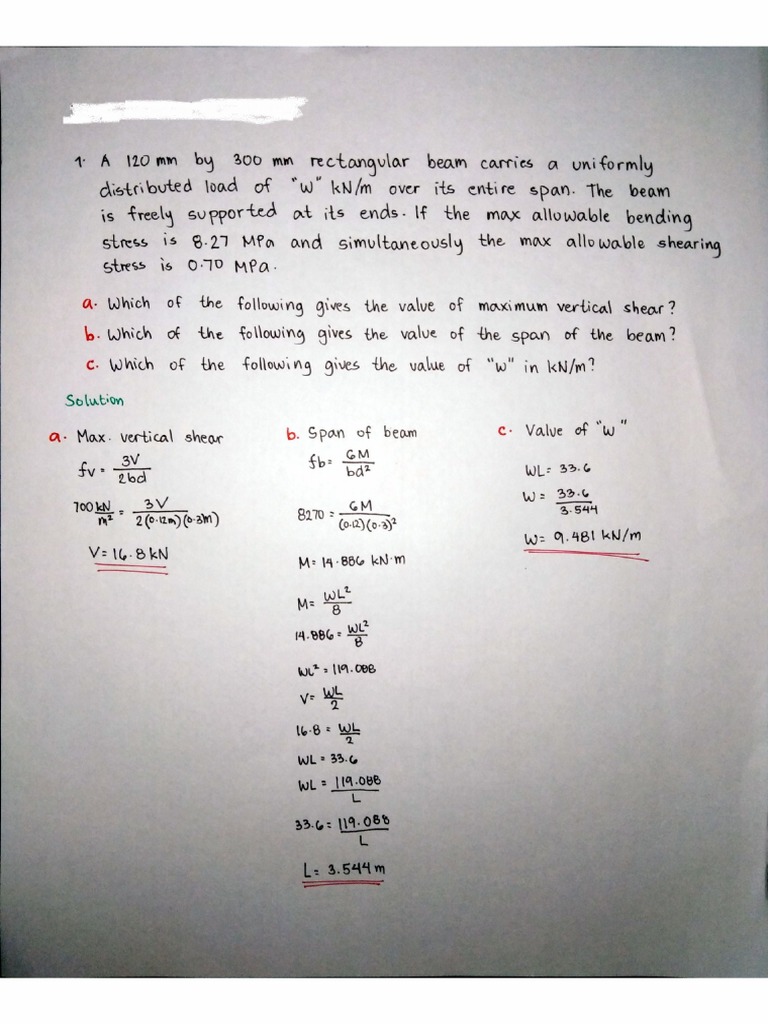 1. A 120 mm by 300 mm rectangular beam carries a uniformly
distributed load of "W" kN/m over its entire span. The beam
is freely supported at its ends. If the max allowable bending
stress is 8.27 MPa and simultaneously the max allowable shearing
stress is 0.70 MPa.
a. Which of the following gives the value of maximum vertical shear?
b. Which of the following gives the value of the span of the beam?
c. Which of the following gives the value of "W" in kN/m?
Solution
a. Max. vertical shear
fv = 3V / 2bd
700 kN/m² = 3V / 2(0.12m)(0.3m)
V= 16.8 kN
b. Span of beam
fb = 6M / bd²
8270 = 6M / (0.12)(0.3)²
M= 14.886 kN·m
M= WL² / 8
14.886 = WL² / 8
WL² = 119.088
V= WL / 2
16.8 = WL / 2
WL = 33.6
WL = 119.088 / L
33.6 = 119.088 / L
L= 3.544 m
c. Value of "W"
WL= 33.6
W= 33.6 / 3.544
W= 9.481 kN/m